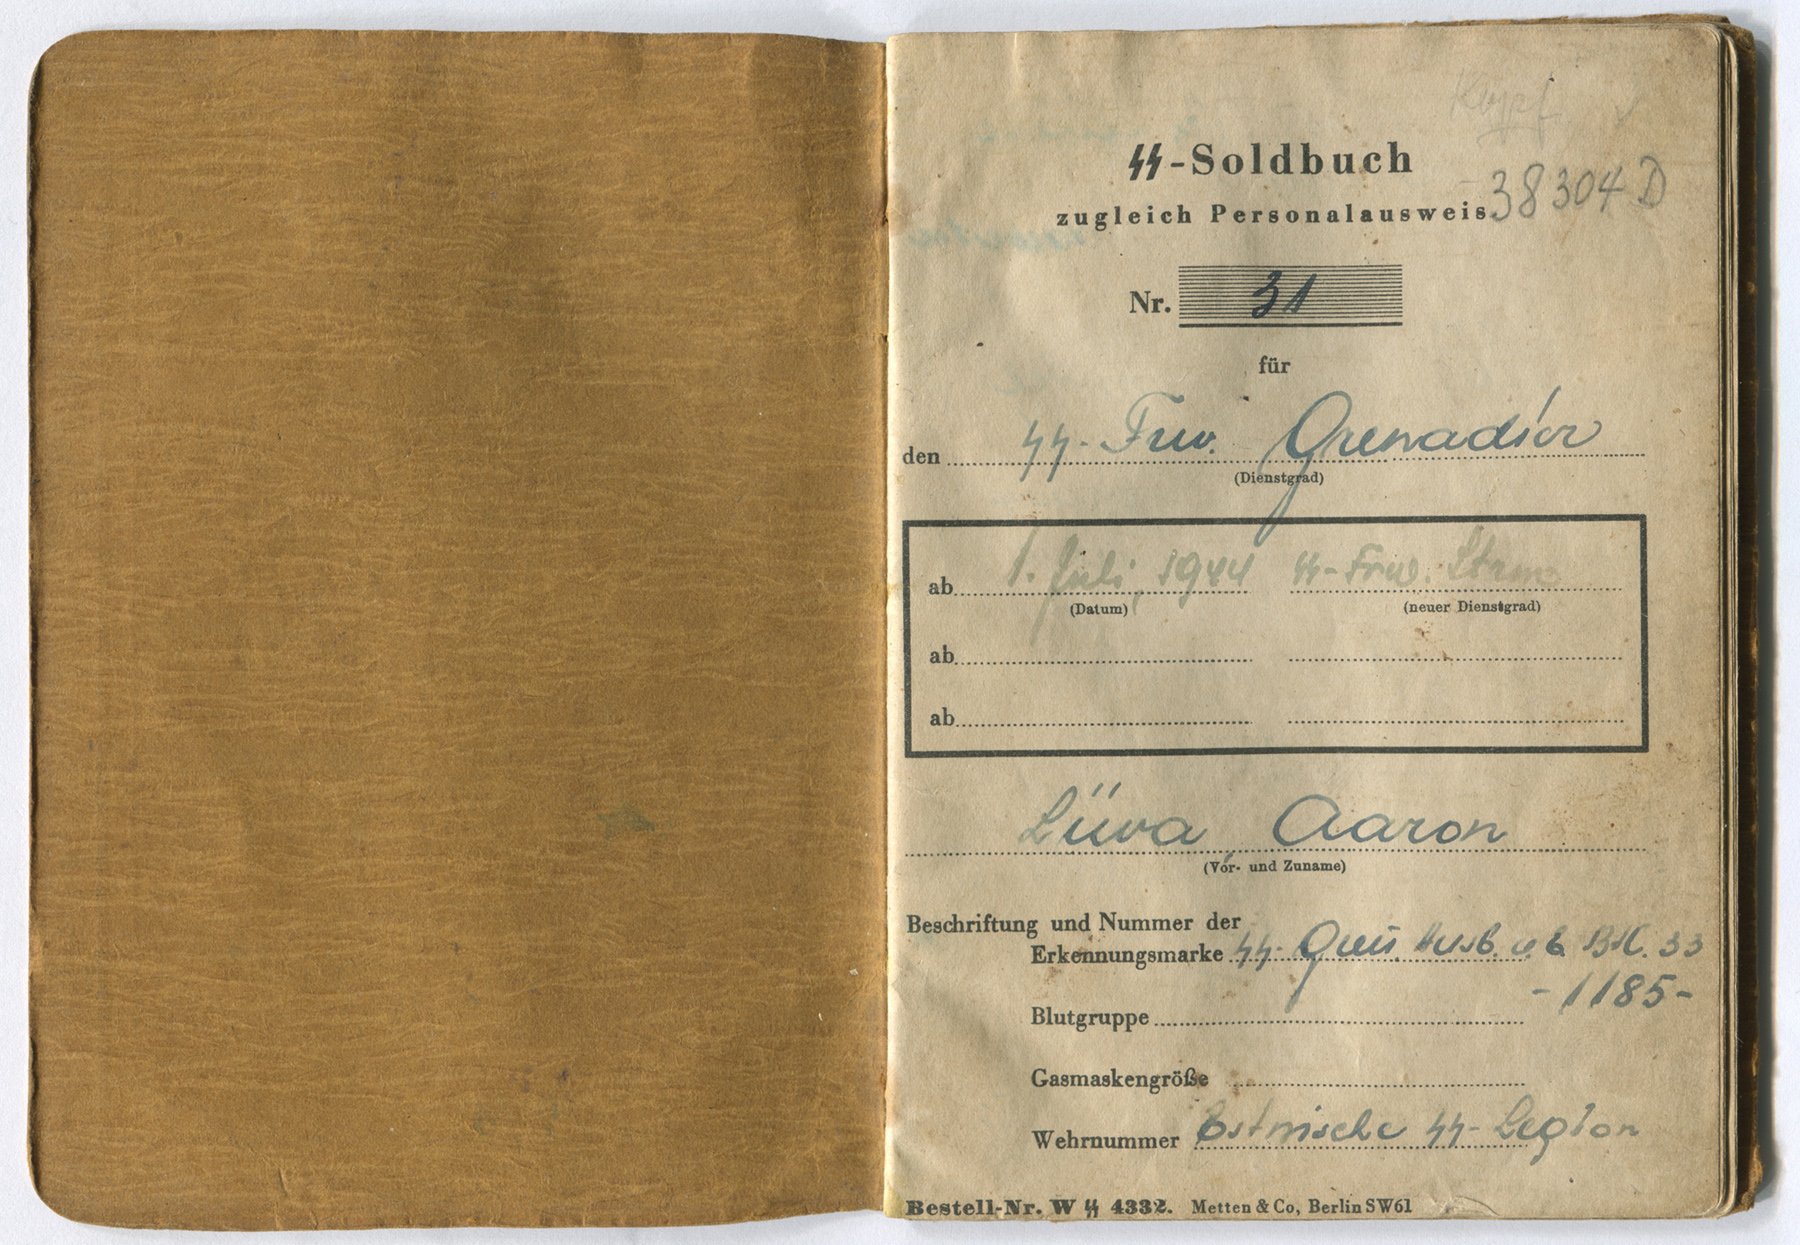 38304 D
SS-Soldbuch
zugleich Personalausweis
Nr. 31
für
den SS-Frw. Grenadier
(Dienstgrad)
ab 1. Juli, 1944 SS-Frw. Strm
(Datum) (neuer Dienstgrad)
ab
ab
Lüva Aaron
(Vor- und Zuname)
Beschriftung und Nummer der
Erkennungsmarke SS-Gren. Ausb. u. E Btl. 33
-1185-
Blutgruppe
Gasmaskengröße
Wehrnummer Estnische SS-Legion
Bestell-Nr. W SS 4332. Metten & Co, Berlin SW61